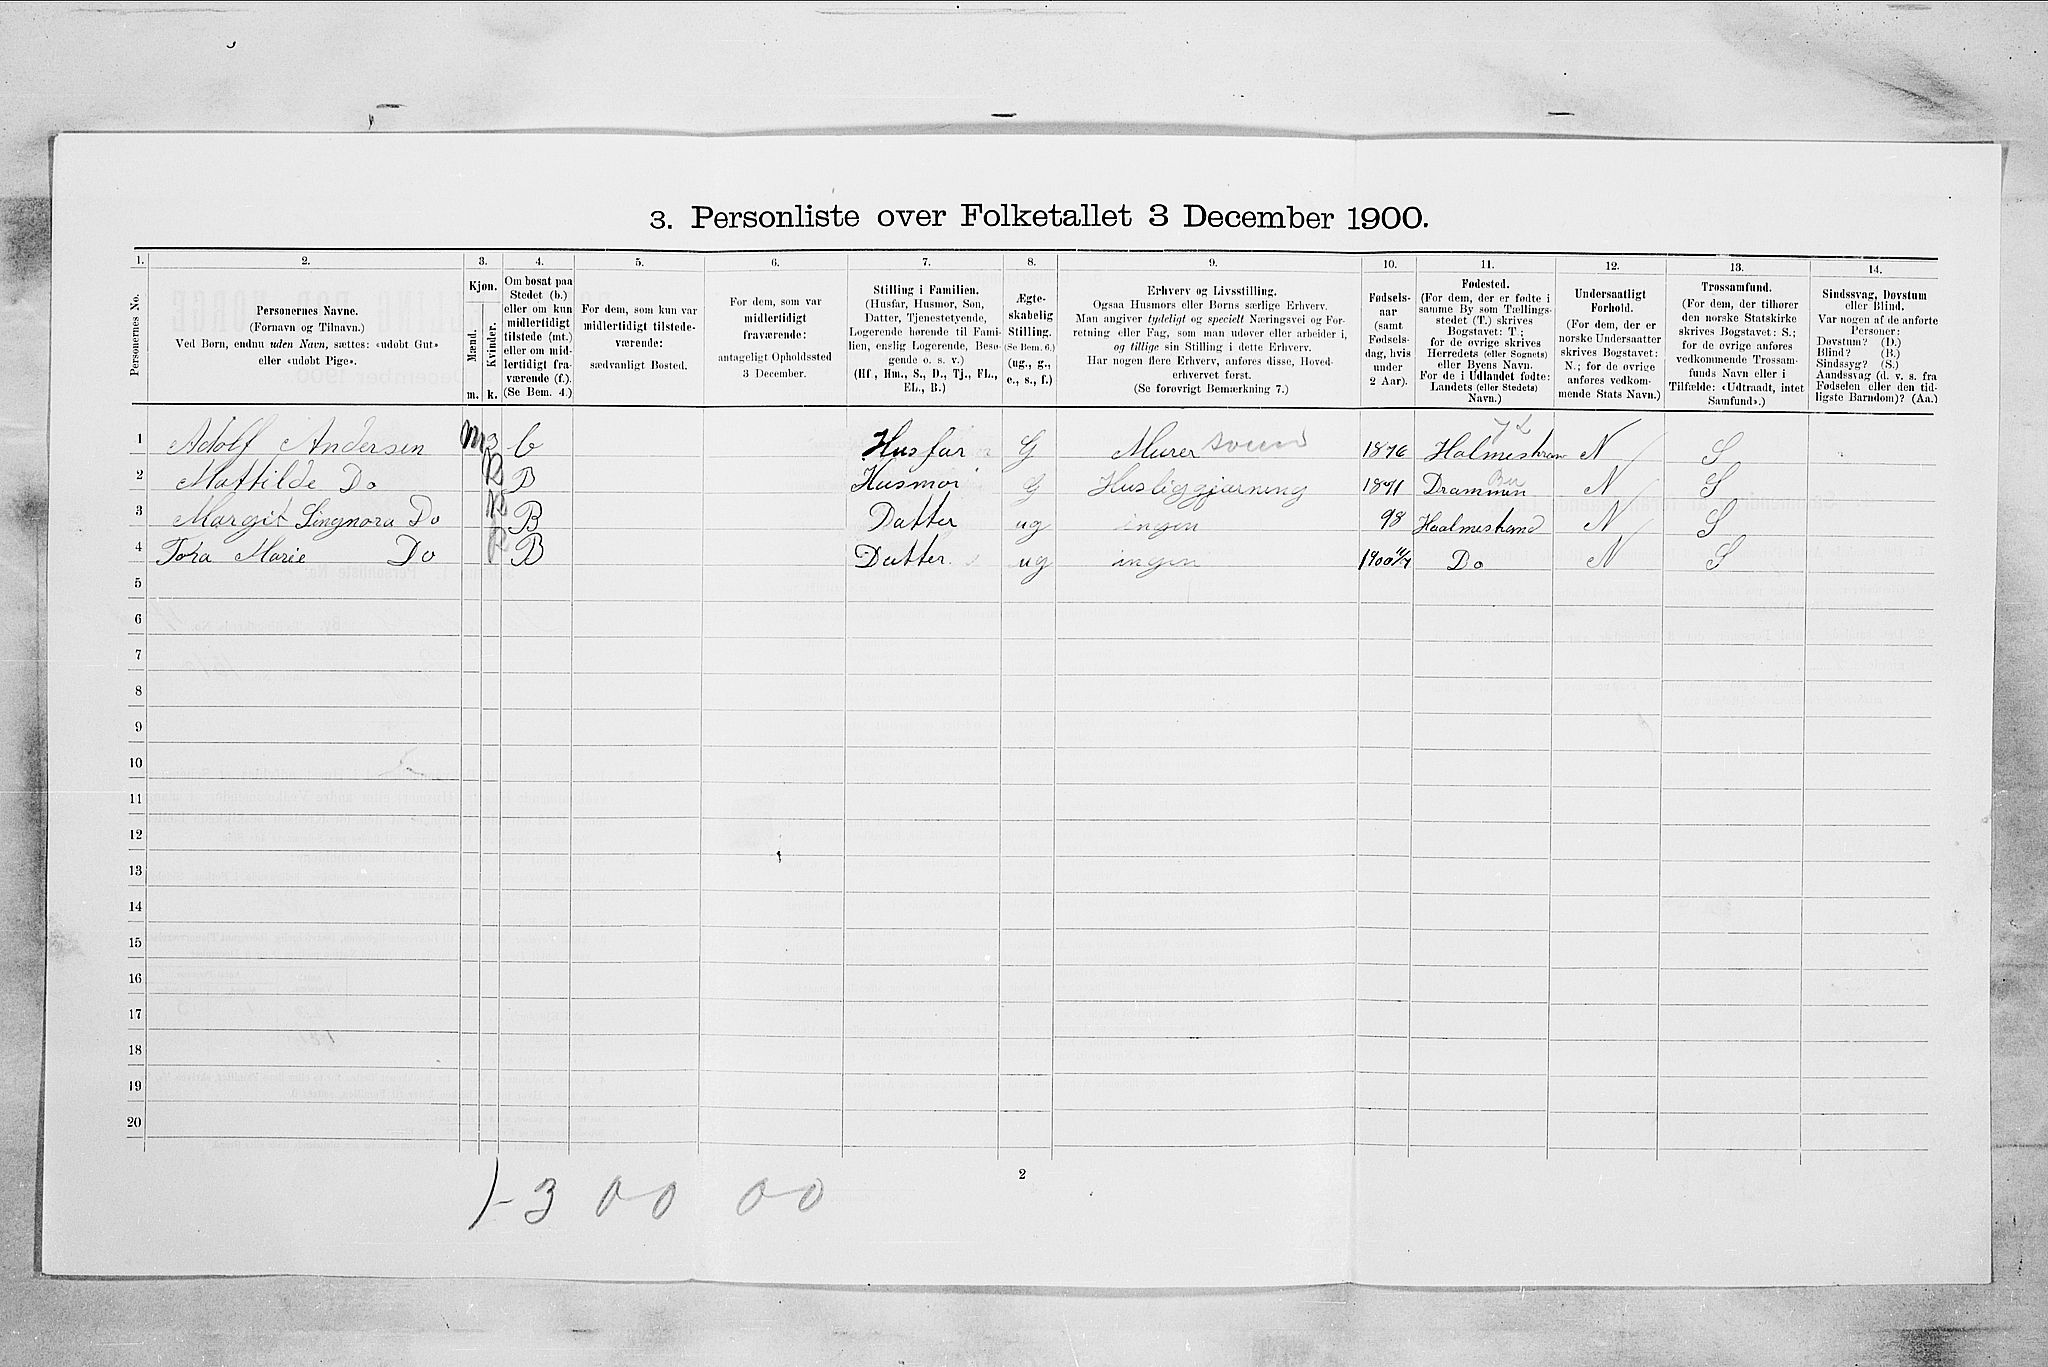 3. Personliste over Folketallet 3 December 1900.
1. 2. 3. 4. 5. 6. 7. 8. 9. 10. 11. 12. 13. 14.
Personernes No.
Personernes Navne.
(Fornavn og Tilnavn.)
Ved Børn, endnu uden Navn, sættes: «udøbt Gut»
eller «udøbt Pige».
Kjøn.
Mænd.
Kvinder.
m. k.
Om bosat paa
Stedet (b.)
eller om kun
midlertidigt
tilstede (mt.)
eller om mid-
lertidigt fra-
værende (f.).
(Se Bem. 4.)
For dem, som kun var
midlertidigt tilstede-
værende:
sædvanligt Bosted.
For dem, som var
midlertidigt
fraværende:
antageligt Opholdssted
3 December.
Stilling i Familien.
(Husfar, Husmor, Søn,
Datter, Tjenestetyende,
Logerende hørende til Fami-
lien, enslig Logerende, Besø-
gende o. s. v.)
(Hf., Hm., S., D., Tj., FL.,
EL., B.)
Ægte-
skabelig
Stilling.
(Se Bem. 6.)
(ug., g.,
e., s., f.)
Erhverv og Livsstilling.
Ogsaa Husmors eller Børns særlige Erhverv.
Man angiver tydeligt og specielt Næringsvei og For-
retning eller Fag, som man udøver eller arbeider i,
og tillige sin Stilling i dette Erhverv.
Har nogen flere Erhverv, anføres disse, Hoved-
erhvervet først.
(Se forøvrigt Bemærkning 7.)
Fødsels-
aar
(samt
Fødsels-
dag, hvis
under
2 Aar).
Fødested.
(For dem, der er fødte i
samme By som Tællings-
stedet (T.) skrives
Bogstavet: T.;
for de øvrige skrives
Herredets (eller Sognets)
eller Byens Navn.
For de i Udlandet fødte:
Landets (eller Stedets)
Navn.)
Undersaatligt
Forhold.
(For dem, der er
norske Undersaatter
skrives Bogstavet:
N.; for de øvrige
anføres vedkom-
mende Stats Navn.)
Trossamfund.
(For dem, der tilhører
den norske Statskirke
skrives Bogstavet: S.;
for de øvrige anføres
vedkommende Trossam-
funds Navn eller i
Tilfælde: «Udtraadt, intet
Samfund».)
Sindssvag, Døvstum
eller Blind.
Var nogen af de anførte
Personer:
Døvstum? (D.)
Blind? (B.)
Sindssyg? (S.)
Aandssvag (d. v. s. fra
Fødselen eller den tid-
ligste Barndom)? (Aa.)
1 Adolf Andersen m b Husfar G Murer svend 1876 Holmestran N S
2 Mattilde Do K B Husmor G Husliggjørning 1871 Drammen N S
3 Margit Singnora Do K B Datter ug ingen 98 Haalmestrand N S
4 Tora Marie Do K B Datter ug ingen 1900 Do N S
5
6
7
8
9
10
11
12
13
14
15
16
17
18
19
20
2
1-3 00 00